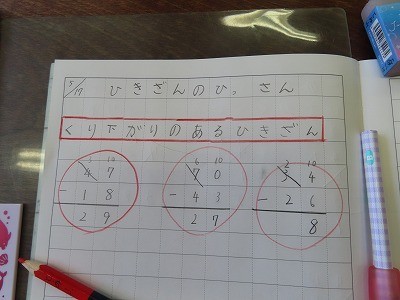 5/17 ひきざんのひっさん
くり下がりのあるひきざん
3 10
4 7
- 1 8
2 9
6 10
7 0
- 4 3
2 7
2 10
3 4
- 2 6
8